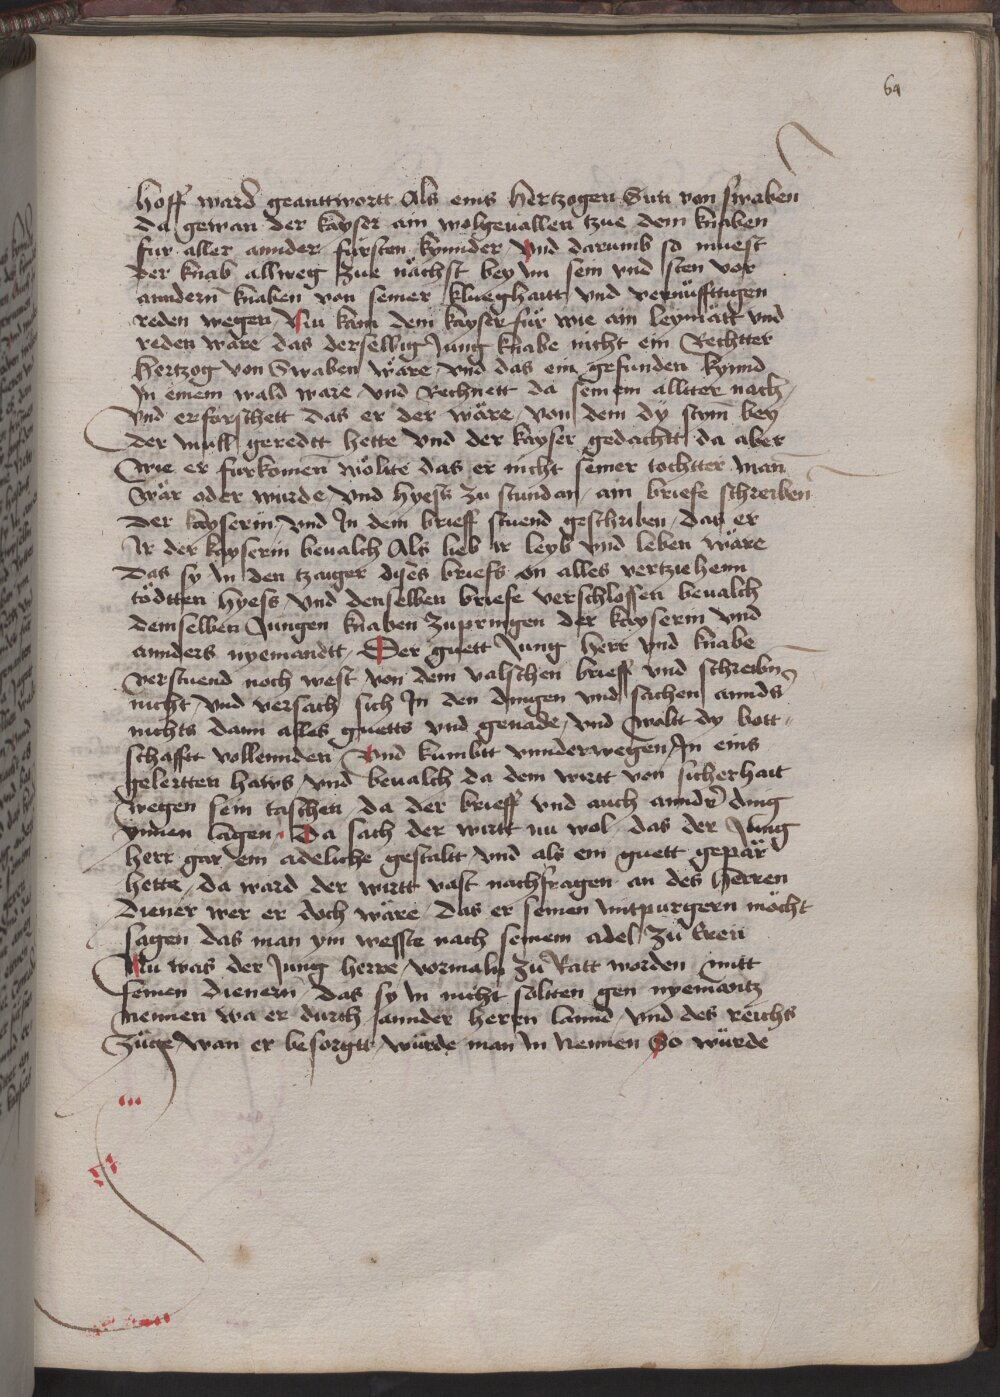 64
hoff ward geanttwortt Als eins hertzogen Sun von swaben
da gewan der kayser ain wolgeuallen tzue dem knaben
fur aller annder fürsten kynnder Vnd darumb so muest
der knab allweg zue nächst bey im sein vnd sten vor
anndern knaben von seiner klueghaitt vnd vernüfftigen
reden wegen Nu kam dem kayser für wie ain leymätt vnd
reden wäre das derselbig Jung knabe nicht ein Rechtter
hertzog von Swaben wäre vnd das ein gefunden kynnd
In einem wald ware vnd Rechnett da seinem allter nach
vnd erforschett das er der wäre von dem dy stym bey
der mull geredtt hette vnd der kayser gedachtt da aber
wie er furkomen wollte das er nicht seiner tochtter man
wär oder wurde vnd hyess zu stundan ain briefe schreiben
der kayserin vnd In dem brieff stuend geschriben das er
Ir der kayserin beualch Als lieb ir leyb vnd leben wäre
das sy In den tzaiger dises briefs on alles vertziehenn
tödtten hyess vnd denselben briefe verschlossen beualch
demselben Jungen knaben zupringen der kayserin vnd
annders nyemandtt Der guett Jung herr vnd knabe
verstuend noch west von dem valschen brieff vnd schreiben
nicht vnd versach sich In den dingen vnd sachen annders
nichts dann alles guetts vnd genade vnd waltt dy bott
schafft vollennden Vnd kumbtt vnnderwegen In eins
gelertten haws vnd beualch da dem wirtt von sicherhait
wegen sein taschen da der brieff vnd auch annder ding
ynnen lagen Da sach der wirtt nu wol das der Jung
herr gar ein adeliche gestaltt vnd als ein guett gepär
hette da ward der wirtt vast nachfragen an des herren
diener wer er doch wäre das er seinen mitpurgern möcht
sagen das man ym wesste nach seinem adel zu Eeren
Nu was der Jung herre vormaln zu Ratt worden mitt
seinen dienern das sy In nicht sollten gen nyemantz
nennen wa er durch annder herrn lannd vnd des reichs
züge wan er besorgtt würde man In nennen So würde